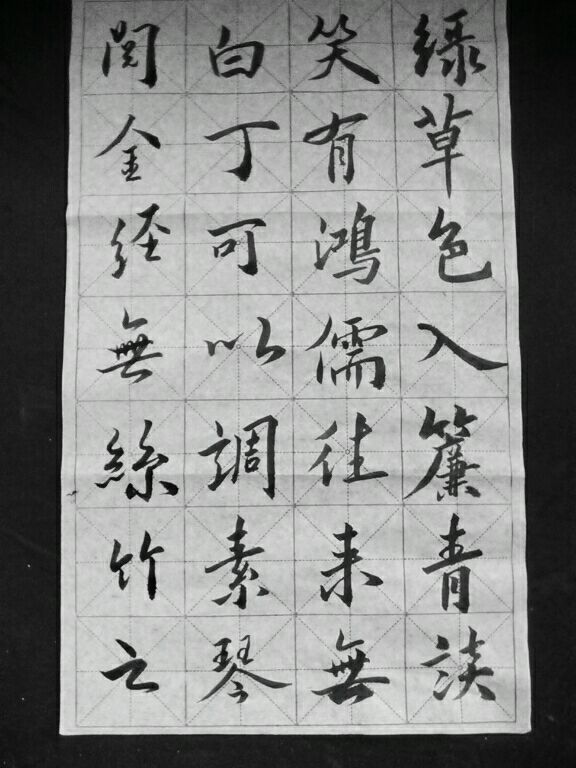 綠草色入簾青談
笑有鴻儒往来無
白丁可以調素琴
閱金経無絲竹之